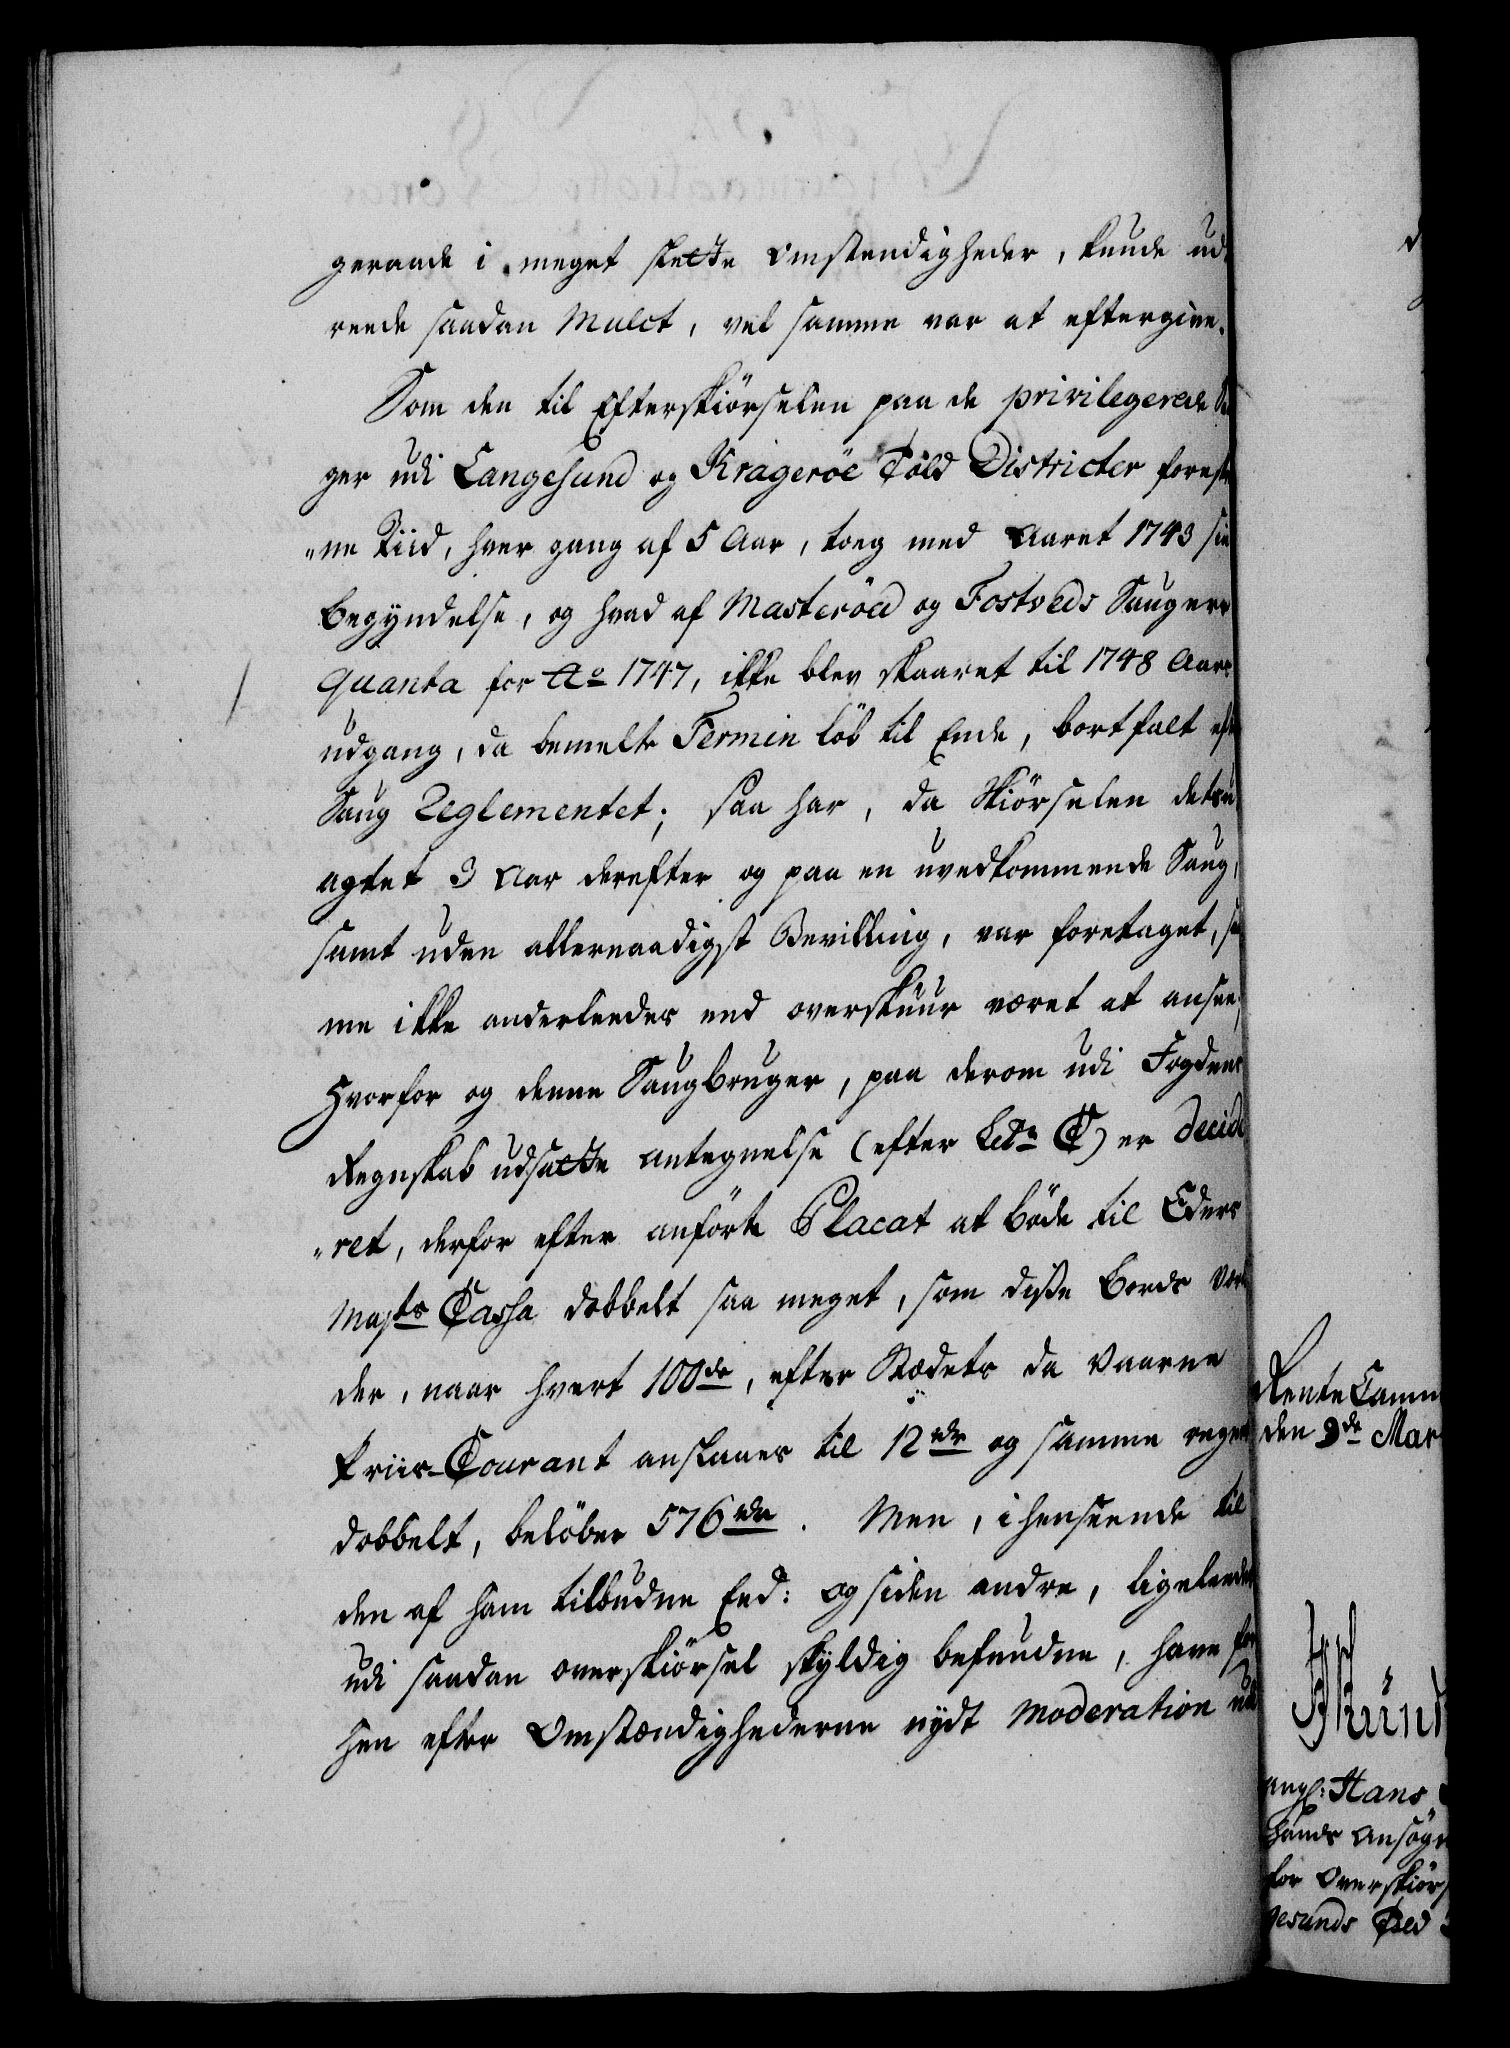 geraade i meget slette Omstendigheder, kunde ud-
reede saadan Mulct, vel samme var at eftergive.
Som den til Efterskiørselen paa de privilegerede Sau
ger udi Langesund og Kragerøe Told Districter forest
„ne Tiid, hver gang af 5 Aar, tog med Aaret 1743 sin
Begyndelse, og hvad af Masterød og Fostveds Saugers
Quanta for Ao 1747, ikke blev skaaret til 1748 Aars
udgang, da bemelte Termin løb til Ende, bortfalt efter
Saug Reglementet; saa har, da Skiørselen desu
agtet 3 Aar derefter og paa en uvedkommende Saug,
samt uden allernaadigst Bevilling, var foretaget, sam
me ikke anderleedes end overskuur været at ansee;
Hvorfor og denne Saugbruger, paa derom udi Fogdens
Regnskab udsatte Antegnelse (efter Litr C) er decide
„ret, derfor efter anførte Placat at bøde til Eders
Majts Cassa dobbelt saa meget, som disse Bords Vær
der, naar hvert 100de, efter Stædets da værende
Priis-Courant anslaaes til 12 rdr og samme regnes
dobbelt, beløber 576 rdr. Men, i henseende til
den af ham tilbudne Eed: og siden andre, ligeleedes
udi saadan overskiørsel skyldig befundne, have for
hen efter Omstændighederne nydt Moderation udi
RenteCamm
den 9de Mar
angl: Hans
hands Ansøgn
for Overskiørs
gesunds